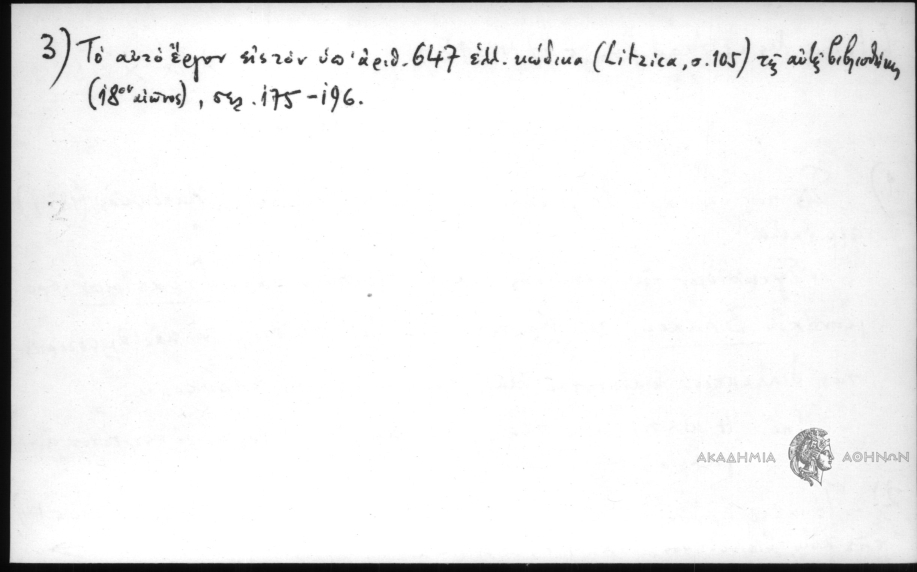 3) Τὸ αὐτὸ ἔργον εἰς τὸν ὑπ' ἀριθ. 647 ἑλλ. κώδικα (Litzica, σ. 105) τῆς αὐτῆς βιβλιοθήκης
(18ου αἰῶνος), σελ. 175 - 196.
ΑΚΑΔΗΜΙΑ ΑΘΗΝΩΝ